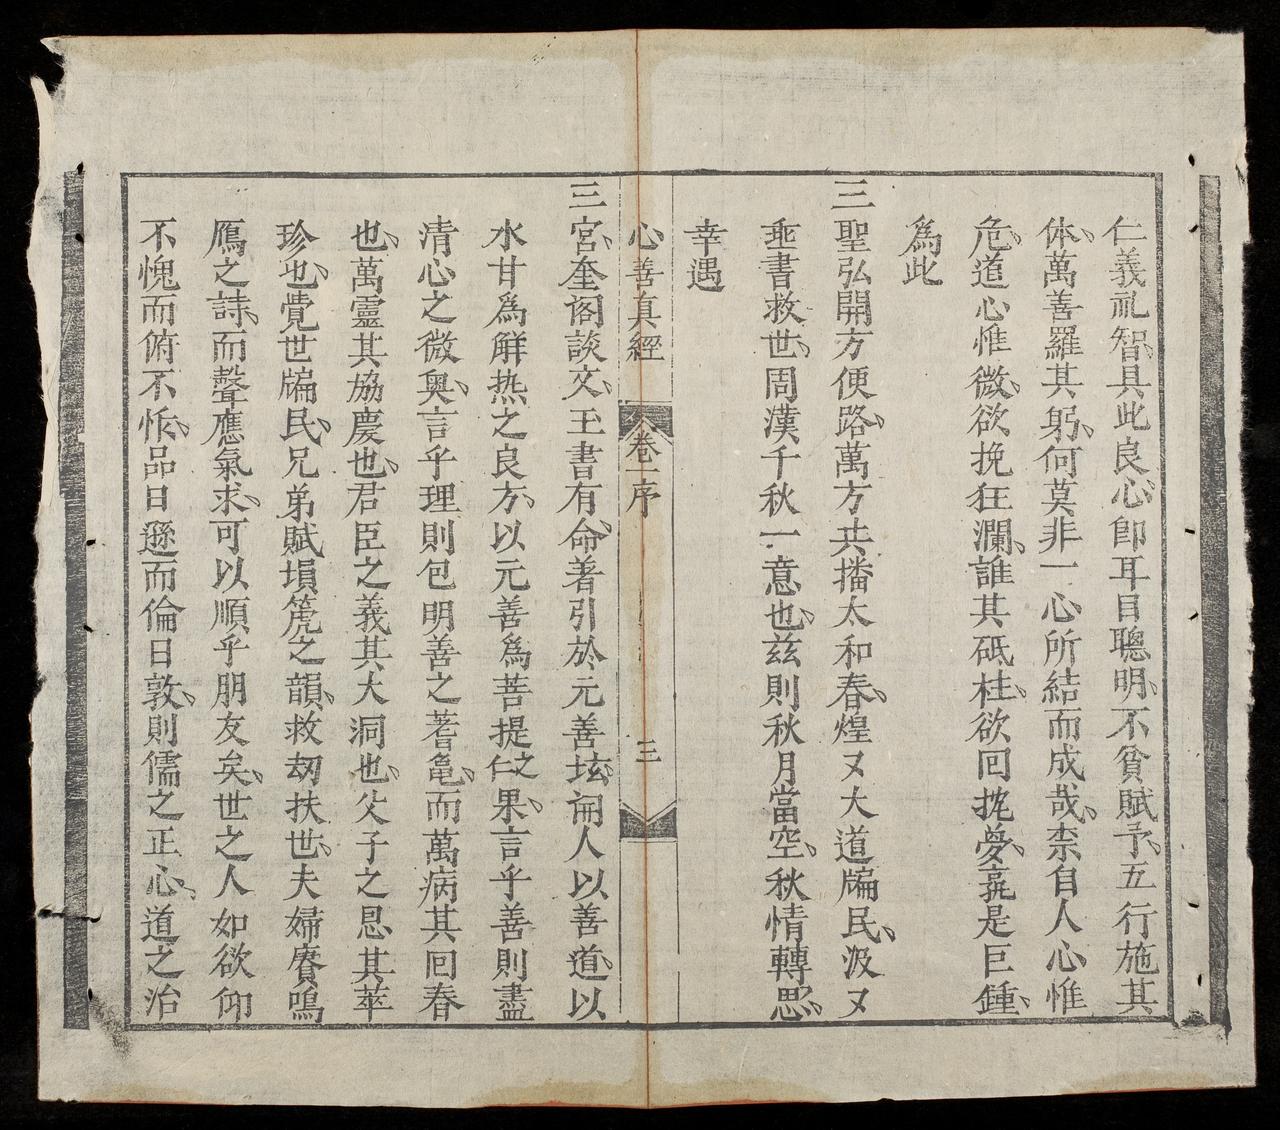 仁義礼智、具此良心、即耳目聰明、不貧賦予、五行施其
体、萬善羅其躬、何莫非一心所結而成哉、柰自人心惟
危、道心惟微、欲挽狂瀾、誰其砥柱、欲回夢、是巨鍾、
為此
三聖弘開方便路、萬方共播太和春、煌〻大道牖民、汲〻
埀書救世、周漢千秋一意也、兹則秋月當空、秋情轉思、
幸遇
心善真經 卷一序 三
三宮、奎阁談文、王書有命、著引於元善坛、開人以善道、以
水甘爲解热之良方、以元善爲菩提之仁果、言乎善則盡
清心之微奥、言乎理則包明善之蓍亀、而萬病其回春
也、萬靈其協慶也、君臣之義其大洞也、父子之恩其萃
珍也、覺世牖民、兄弟賦塤箎之韻、救刼扶世、夫婦賡鳴
鴈之詩、而聲應氣求、可以順乎朋友矣、世之人如欲仰
不愧而俯不怍、品日遜而倫日敦、則儒之正心、道之治